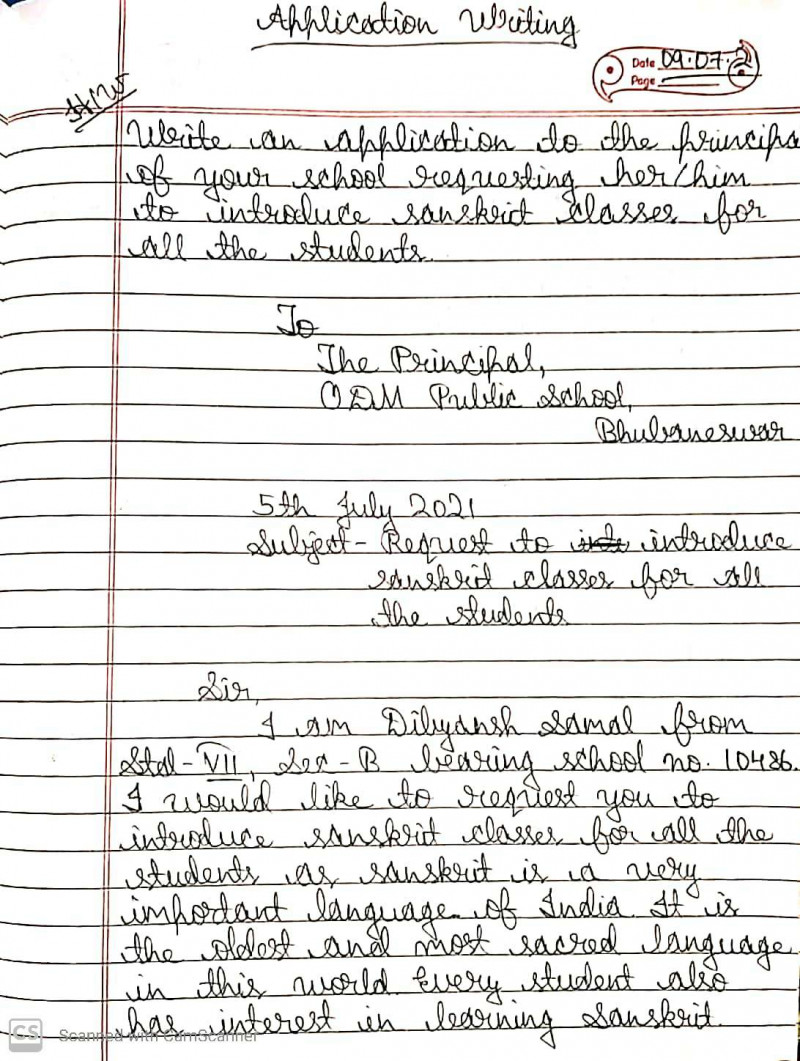 Application Writing
Date 09.07.2
Page
H/W
Write an application to the principa
of your school requesting her/him
to introduce sanskrit classes for
all the students.
To
The Principal,
ODM Public School,
Bhubaneswar
5th July 2021
Subject - Request to introduce
sanskrit classes for all
the students
Sir,
I am Dibyansh Samal from
Std - VII, Sec - B bearing school no. 10486.
I would like to request you to
introduce sanskrit classes for all the
students as sanskrit is a very
important language of India. It is
the oldest and most sacred language
in this world Every student also
has interest in learning Sanskrit.
CS Scanned with CamScanner